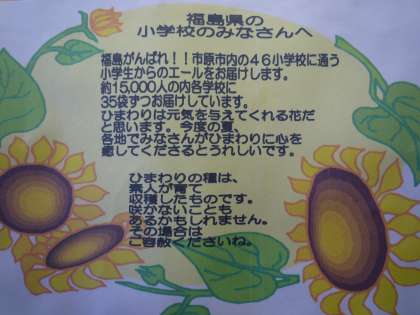 福島県の
小学校のみなさんへ
福島がんばれ！！市原市内の４６小学校に通う
小学生からのエールをお届けします。
約15,000人の内各学校に
35袋ずつお届けしています。
ひまわりは元気を与えてくれる花だ
と思います。今度の夏、
各地でみなさんがひまわりに心を
癒してくださるとうれしいです。
ひまわりの種は、
素人が育て
収穫したものです。
咲かないことも
あるかもしれません。
その場合は
ご容赦くださいね。